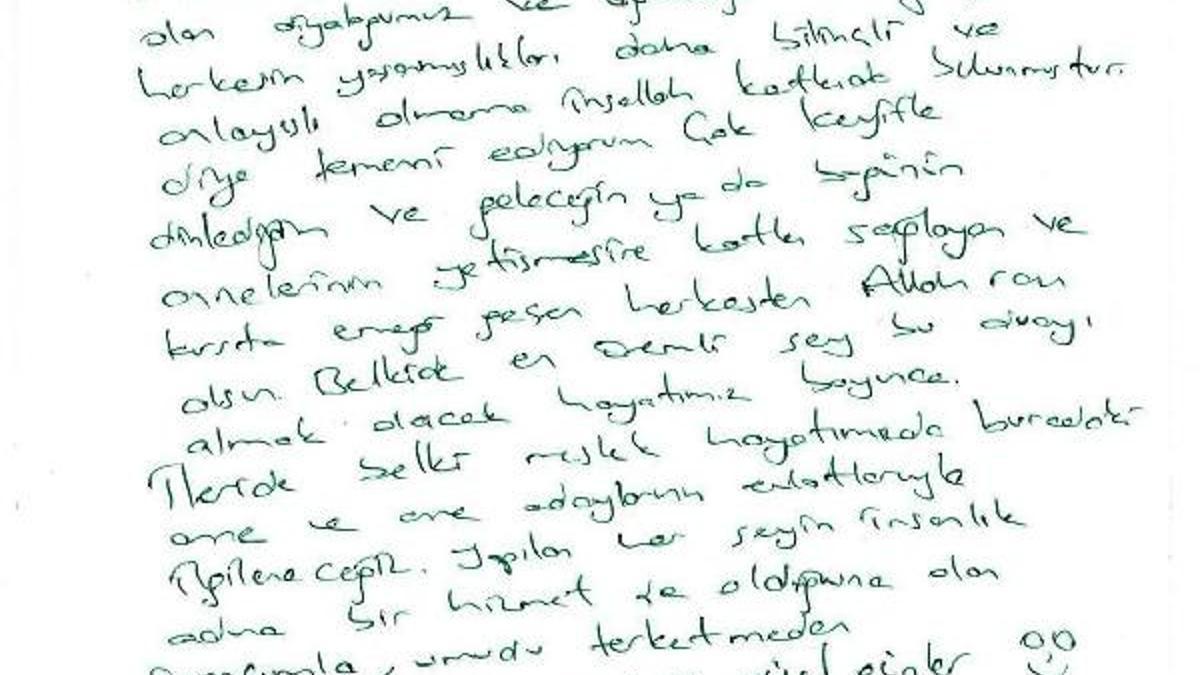 olan diyaloğumuz ve
herkesin yaşanmışlıkları daha bilinçli ve
anlayışlı olmama inşallah katkıda bulunmuştur
diye temenni ediyorum Çok keyifle
dinlediğim ve geleceğin ya da bugünün
annelerinin yetişmesine katkı sağlayan ve
kursta emeği geçen herkesten Allah razı
olsun. Belkide en önemli şey bu duayı
almak olacak hayatımız boyunca.
İleride belki meslek hayatımda buradaki
anne ve anne adaylarının evlatlarıyla
ilgileneceğiz. Yapılan her şeyin insanlık
adına bir hizmet ve olduğuna olan
umudu terketmeden